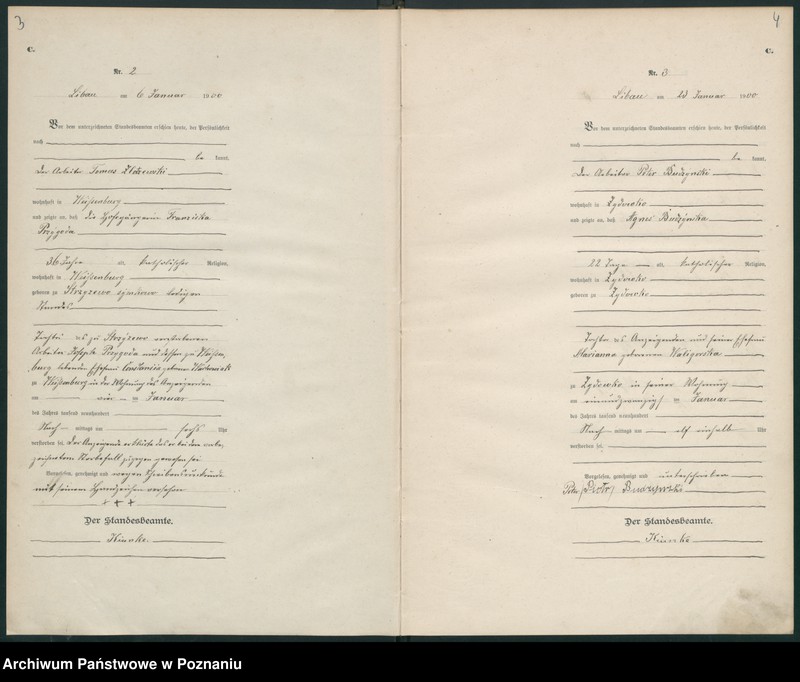 3
C.
Nr. 2
Libau am 6 Januar 1900
Vor dem unterzeichneten Standesbeamten erschien heute, der Persönlichkeit
nach
be kannt,
der Arbeiter
wohnhaft in Weißenburg
und zeigte an, daß die Hofegängerin Franziska
Przygoda
36 Jahre alt, katholischer Religion,
wohnhaft in Weißenburg
geboren zu Strzyzewo ledigen
Standes
Tochter des zu Strzyzewo verstorbenen
Arbeiter Joseph Przygoda und dessen zu Weißen
burg lebenden Ehefrau Constancia geborenen
zu Weißenburg in der Wohnung des Anzeigenden
am vier ten Januar
des Jahres tausend neunhundert
Nach mittags um sechs Uhr
verstorben sei. Der Anzeigende erklärte daß er bei dem unter-
zeichneten Sterbefall zugegen gewesen sei
Vorgelesen, genehmigt und wegen Schreibensunkunde
mit seinem Handzeichen versehen
+ + +
Der Standesbeamte.
4
C.
Nr. 3
Libau am 23 Januar 1900
Vor dem unterzeichneten Standesbeamten erschien heute, der Persönlichkeit
nach
be kannt,
der Arbeiter Peter Budzynski
wohnhaft in Zydowko
und zeigte an, daß Agnes Budzynska
22 Tage alt, katholischer Religion,
wohnhaft in Zydowko
geboren zu Zydowko
Tochter des Anzeigenden und seiner Ehefrau
Marianna geborenen Waligorska
zu Zydowko in seiner Wohnung
am einundzwanzigsten Januar
des Jahres tausend neunhundert
Nach mittags um elf einhalb Uhr
verstorben sei.
Vorgelesen, genehmigt und unterschrieben
Peter (Piotr) Budzynski
Der Standesbeamte.
Archiwum Państwowe w Poznaniu